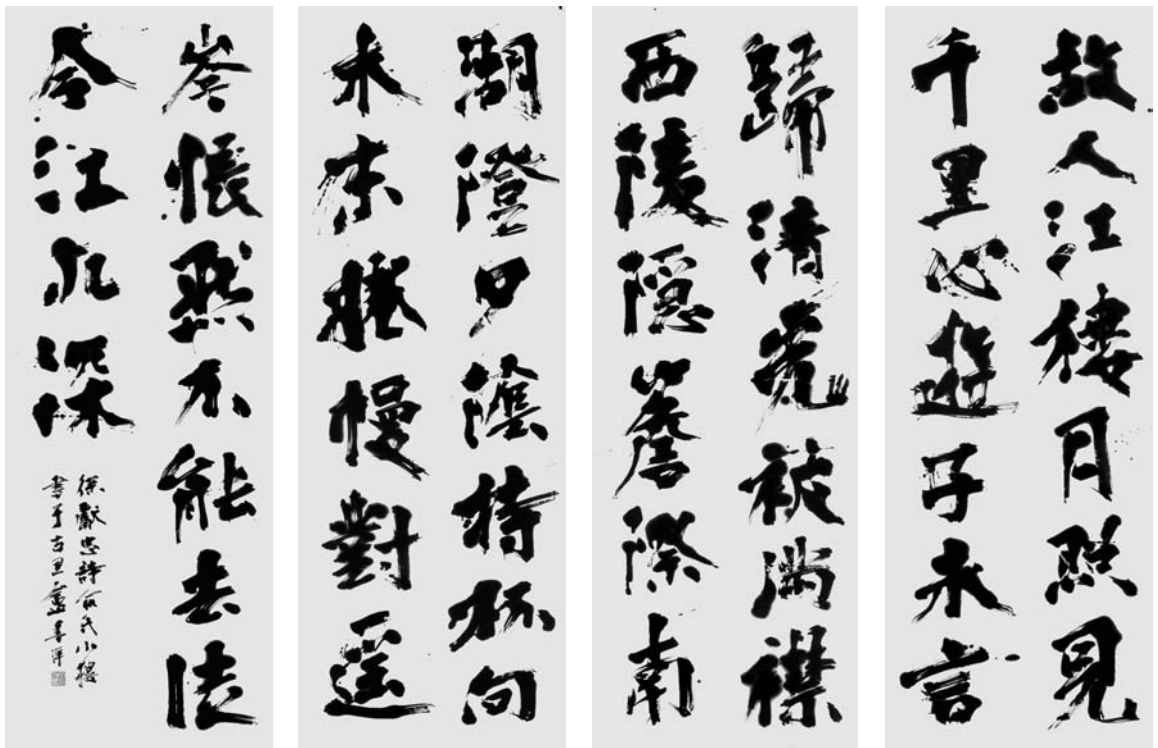 故人江樓月照見
千里心遊子永言
歸清光被滿襟
西陵隱簷際南
湖澄戶蔭持杯向
未來捲幔對遙
岑悵然不能去徒
令江水深
徐獻忠詩俞氏小樓
書于古里